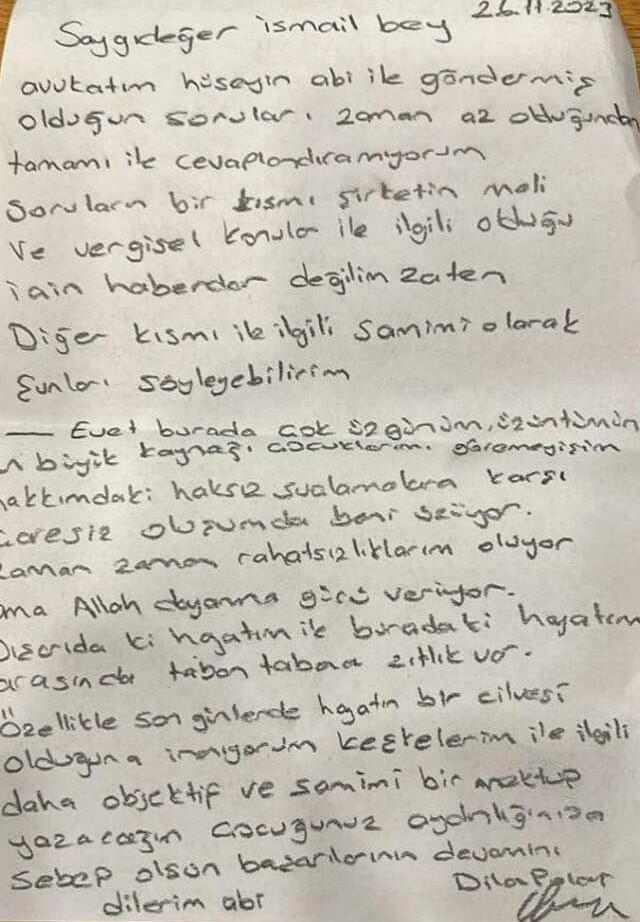 26.11.2023
Saygıdeğer ismail bey
avukatım hüseyin abi ile göndermiş
olduğun soruları zaman az olduğundan
tamamı ile cevaplandıramıyorum
soruların bir kısmı şirketin mali
ve vergisel konular ile ilgili olduğu
için haberdar değilim zaten
Diğer kısmı ile ilgili samimi olarak
şunları söyleyebilirim
— Evet burada çok üzgünüm, üzüntümün
en büyük kaynağı çocuklarımı göremeyişim
hakkımdaki haksız suçlamalara karşı
çaresiz oluşumda beni üzüyor.
zaman zaman rahatsızlıklarım oluyor
ama Allah dayanma gücü veriyor.
Dışarıda ki hayatım ile buradaki hayatım
arasında taban tabana zıtlık var.
Özellikle son günlerde hayatın bir cilvesi
olduğuna inanıyorum keşkelerim ile ilgili
daha objektif ve samimi bir mektup
yazacağım çocuğunuz aydınlığınıza
sebep olsun başarılarının devamını
dilerim abi
Dila Polat